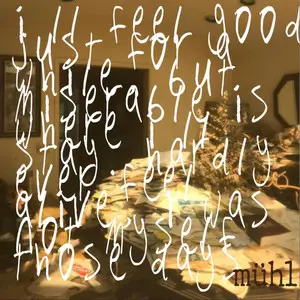 i feel good
just for a
while but
miserable is
where i
stay hardly
ever feel
alive i was
not myself
those days
mühl